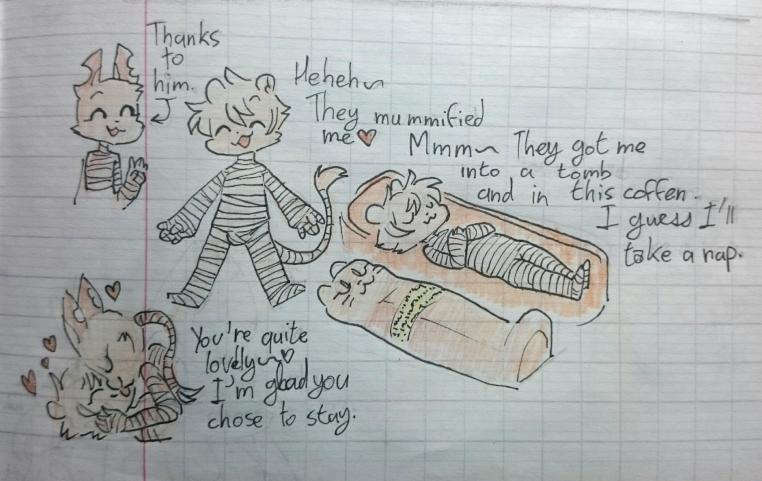 Thanks
to
him.
Heheh~
They mummified
me♥
Mmm~ They got me
into a tomb
and in this coffen.
I guess I'll
take a nap.
You're quite
lovely~♥
I'm glad you
chose to stay.